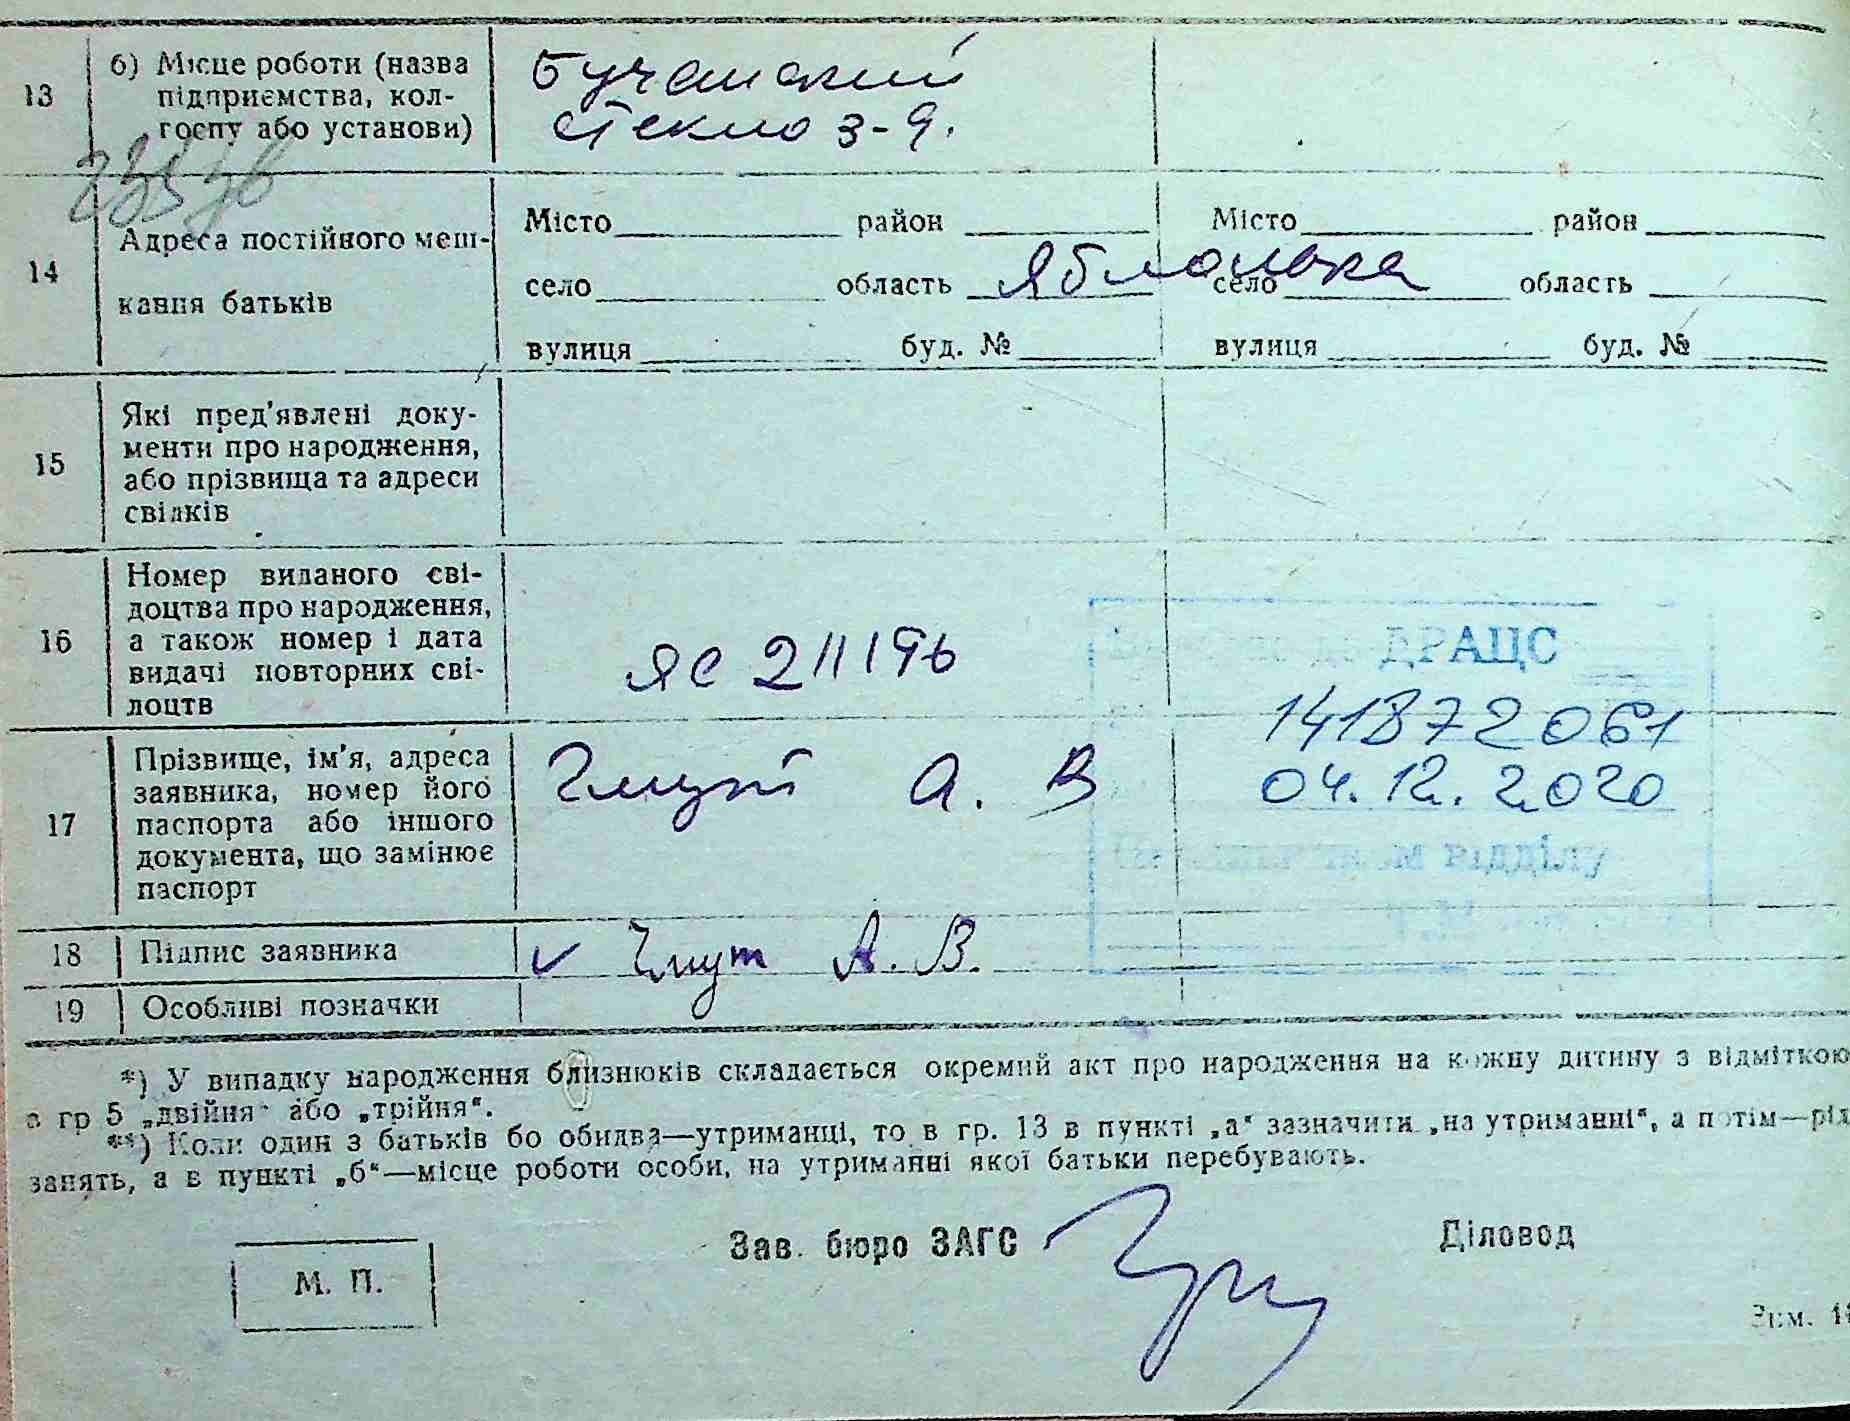 13
б) Місце роботи (назва
підприємства, кол-
госпу або установи)
Бучанский
стекло з-д.
14
Адреса постійного меш-
кання батьків
Місто район Місто район
село область Яблонька село область
вулиця буд. № вулиця буд. №
15
Які пред'явлені доку-
менти про народження,
або прізвища та адреси
свідків
16
Номер виданого сві-
доцтва про народження,
а також номер і дата
видачі повторних сві-
доцтв
ЯС 211196
ДРАЦС
141872061
04.12.2020
відділу
17
Прізвище, ім'я, адреса
заявника, номер його
паспорта або іншого
документа, що замінює
паспорт
Чмут А. В
18 Підпис заявника Чмут А. В.
19 Особливі позначки
*) У випадку народження близнюків складається окремий акт про народження на кожну дитину з відміткою
в гр 5 „двійня“ або „трійня“.
**) Коли один з батьків бо обидва—утриманці, то в гр. 13 в пункті „а“ зазначити „на утриманні“, а потім—рід
занять, а в пункті „б“—місце роботи особи, на утриманні якої батьки перебувають.
Зав. бюро ЗАГС Діловод
М. П.